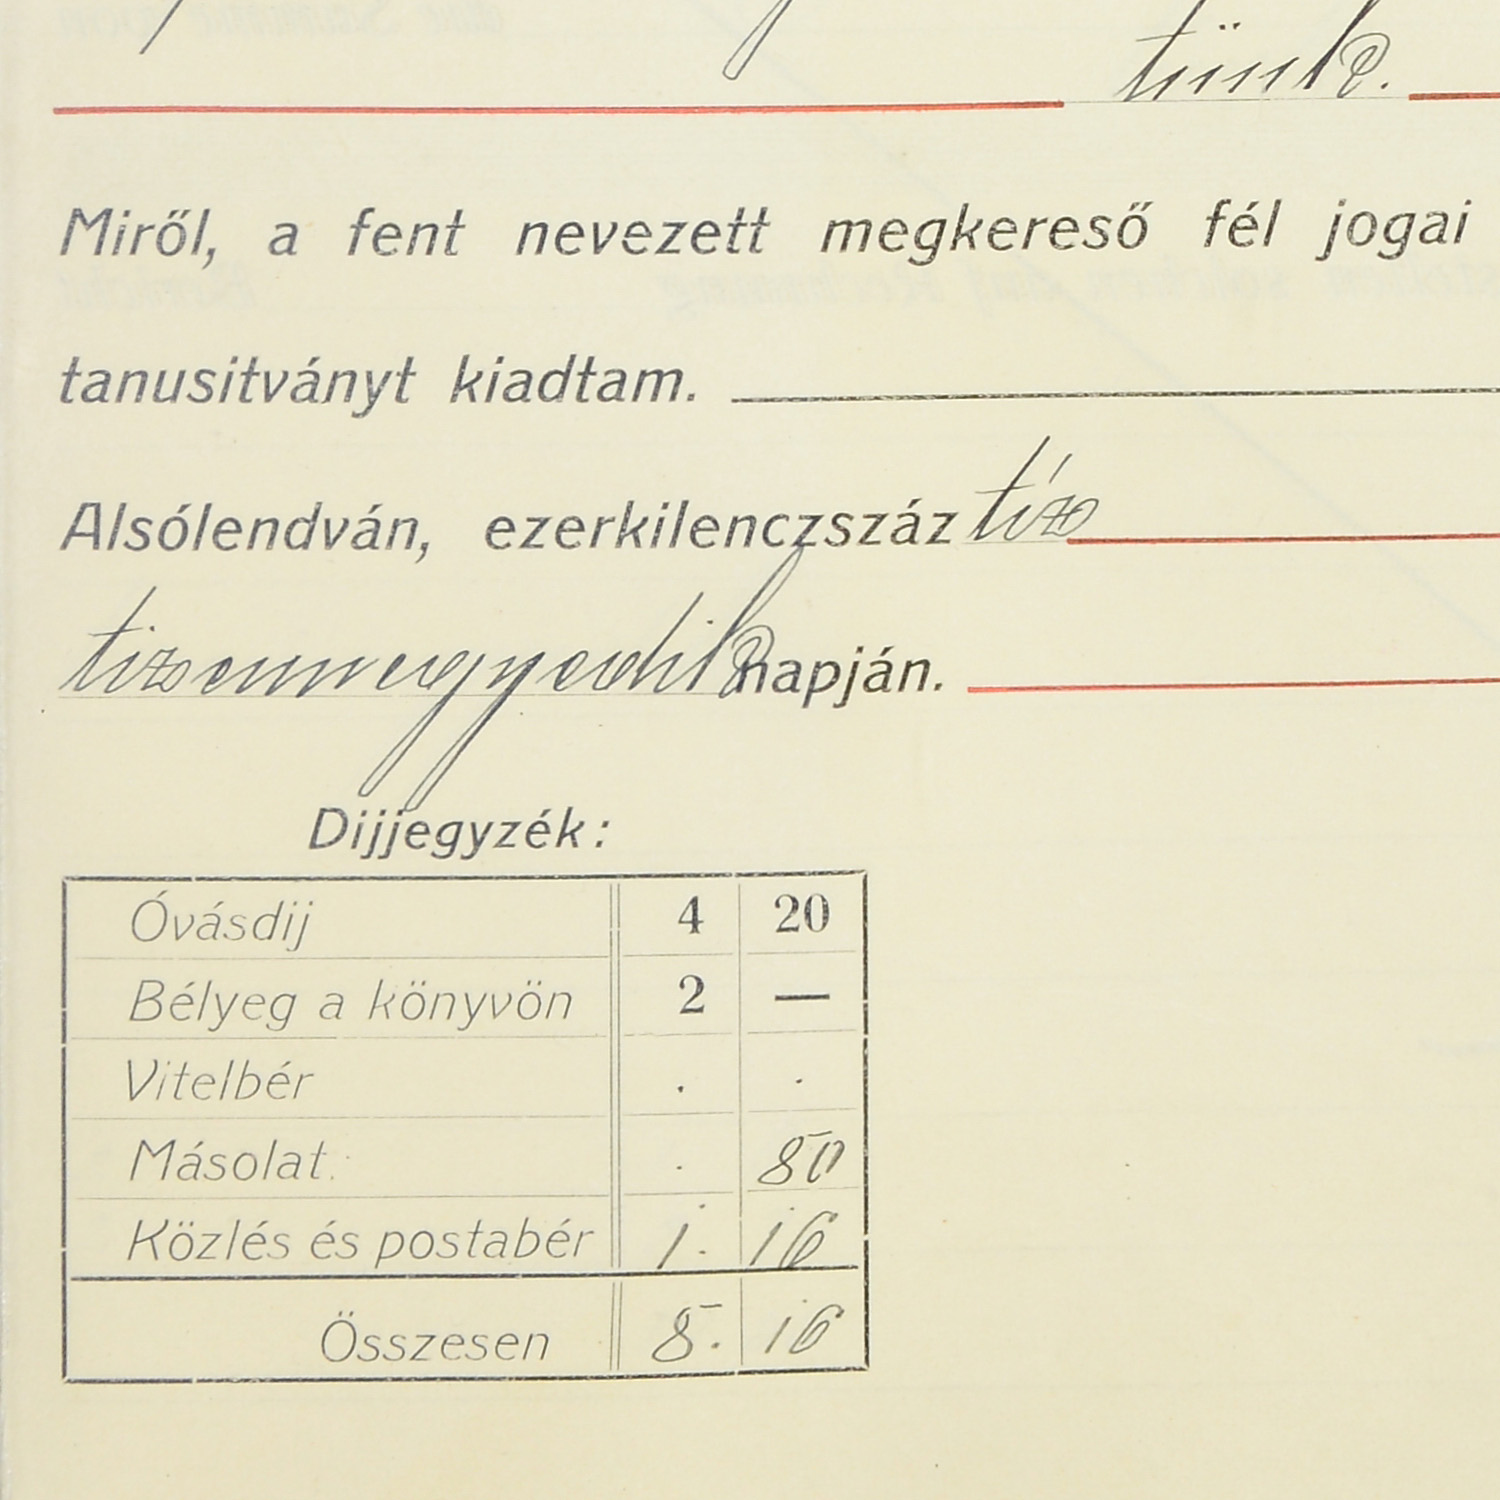 tünk.
Miről, a fent nevezett megkereső fél jogai
tanusitványt kiadtam.
Alsólendván, ezerkilenczszáz tíz
tizennegyedik napján.
Dijjegyzék:
Óvásdij 4 20
Bélyeg a könyvön 2 —
Vitelbér . .
Másolat . 80
Közlés és postabér 1. 16
Összesen 8. 16